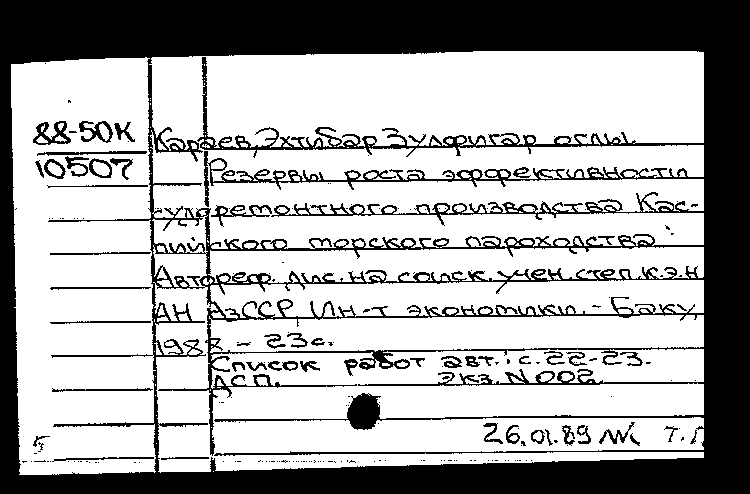 88-50К
10507
Караев, Эхтибар Зулфигар оглы.
Резервы роста эффективности
судоремонтного производства Кас-
пийского морского пароходства :
Автореф. дис. на соиск. учен. степ. к.э.н
АН АзССР, Ин-т экономики. - Баку,
1988 - 23с.
Список работ авт.: с. 22-23.
ДСП. Экз. N 002.
26.01.89 Т.П